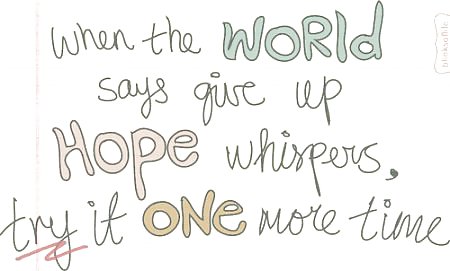 when the WORLd
says give up
HOPe whispers,
try it ONe more time